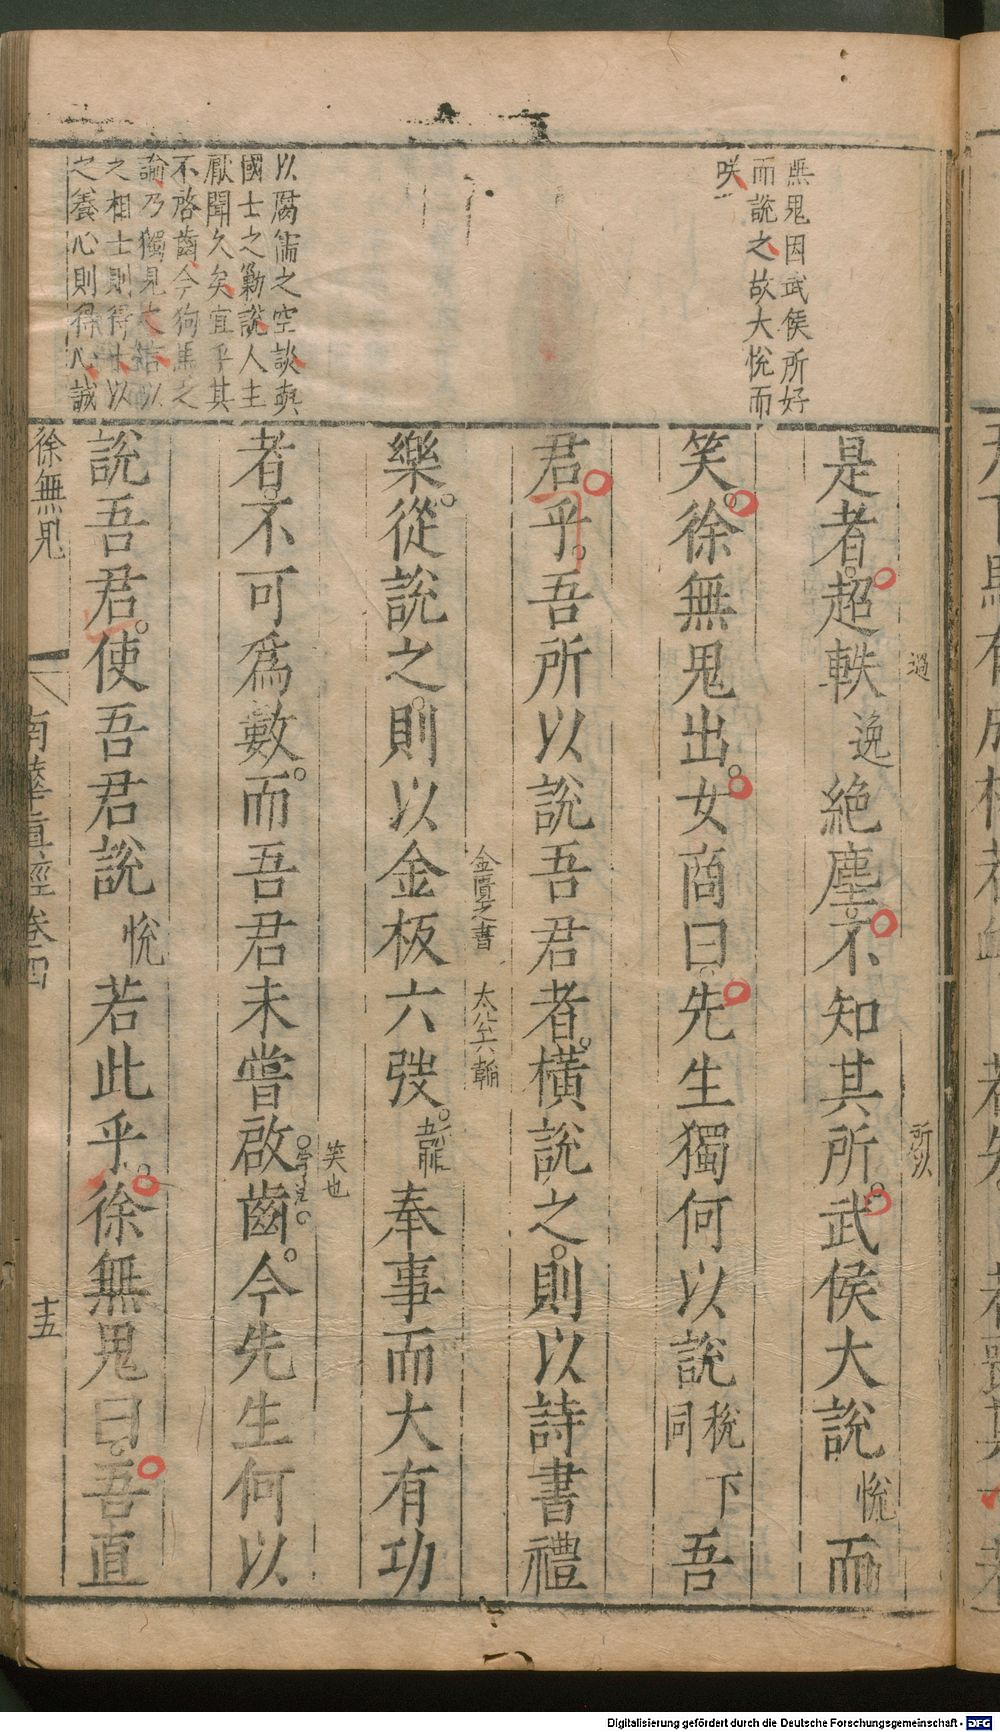 無鬼因武侯所好
而說之故大悅而
咲
以腐儒之空談與
國士之勦說人主
厭聞久矣宜乎其
不啓齒今狗馬之
諭乃獨見大悅以
之相士則得士以
之養心則得心誠
過
所以
是者超軼逸絕塵不知其所武侯大說悅而
笑徐無鬼出女商曰先生獨何以說稅下同吾
君乎吾所以說吾君者橫說之則以詩書禮
金匱之書
太公六韜
樂從說之則以金板六弢奉事而大有功
笑也
者不可爲數而吾君未嘗啟齒今先生何以
說吾君使吾君說悅若此乎徐無鬼曰吾直
徐無鬼
南華真經卷四
十五
Digitalisierung gefördert durch die Deutsche Forschungsgemeinschaft - DFG